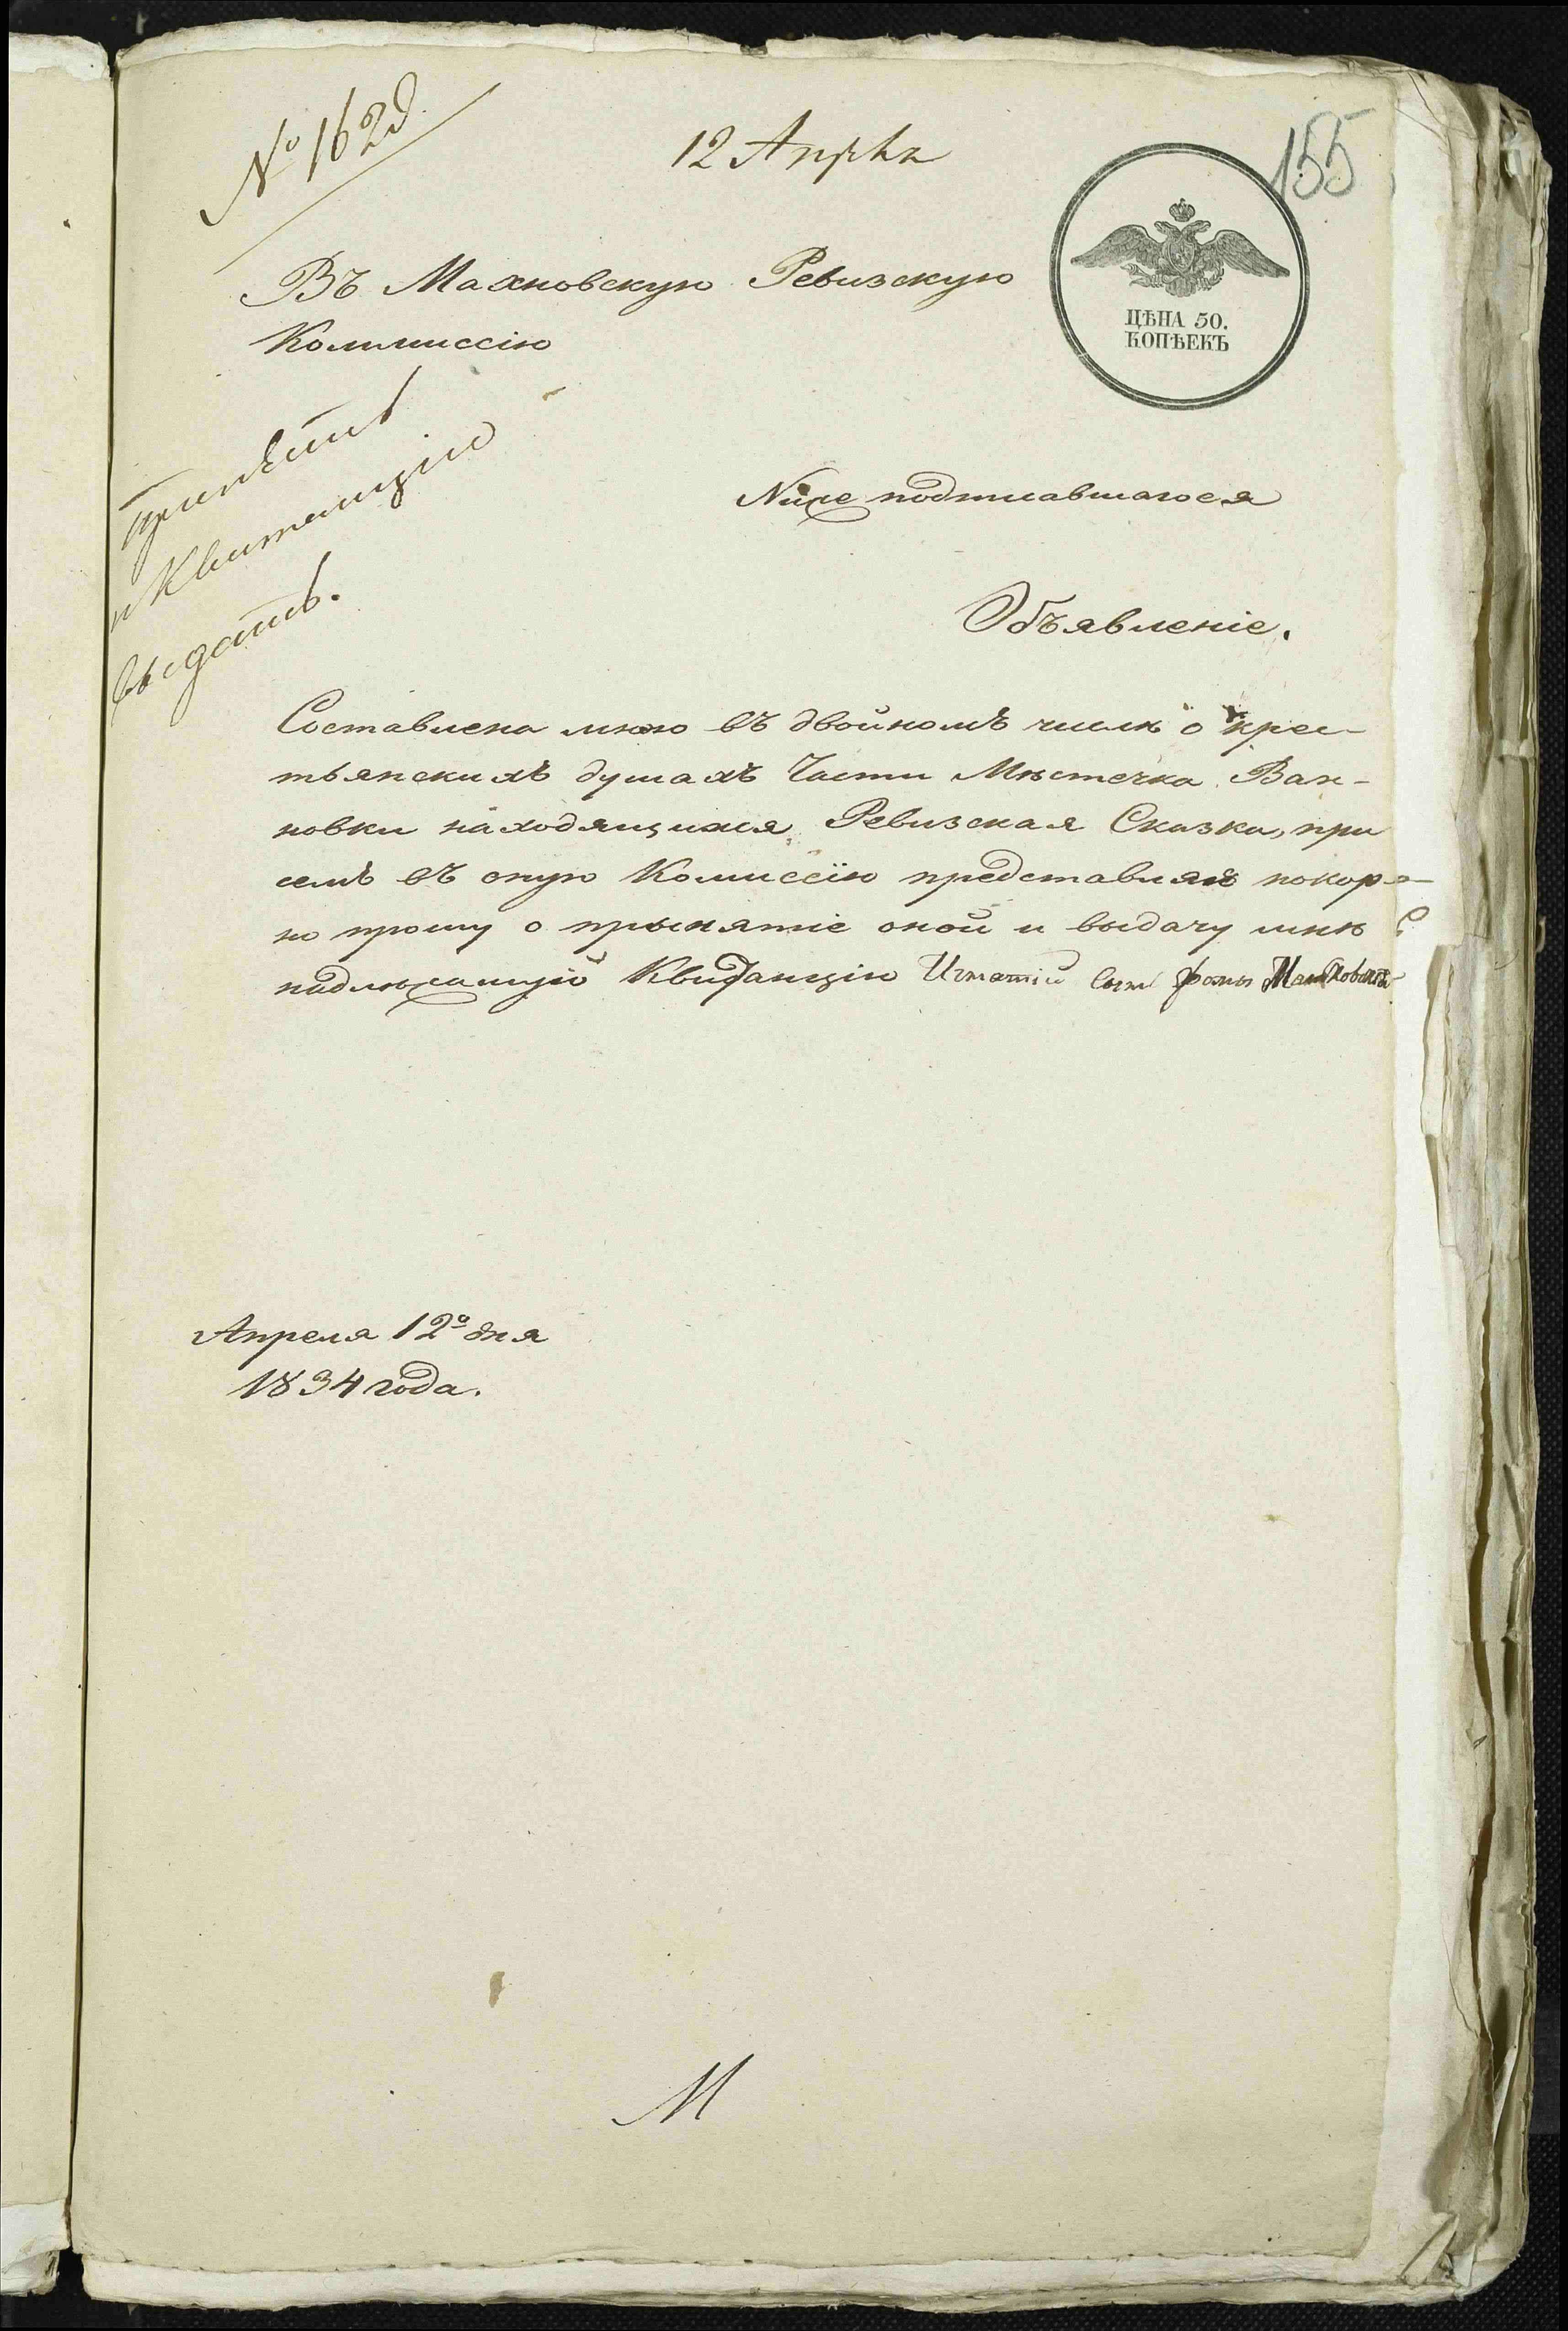 № 162
12 Апрѣля
155
ЦѢНА 50.
КОПѢЕКЪ
Въ Махновскую Ревизскую
Коммиссію
принять
и Квитанцію
выдать.
Ниже подписавшагося
Объявленіе.
Составлена мною въ двойномъ числѣ о крес-
тьянскихъ душахъ Части Мѣстечка Вах-
новки находящихся, Ревизская Сказка, при
семъ въ оную Комиссію представляя покор-
но прошу о прынятіе оной и выдачу мнѣ
надлѣжащую Квиданцію Игнатій Сынъ Фомы
Апреля 12º дня
1834 года.
М